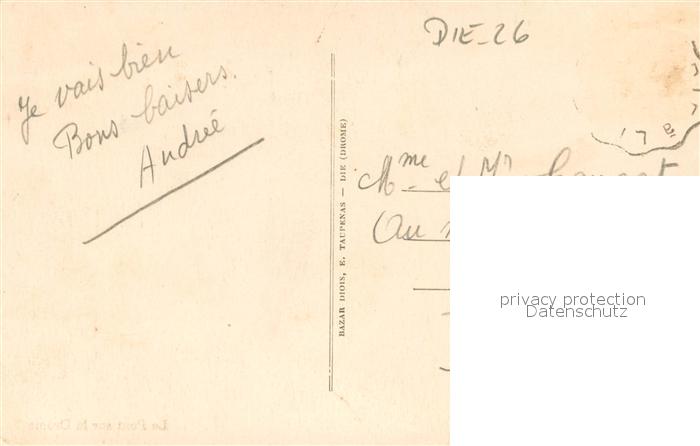 DIE-26
Je vais bien
Bons baisers.
Andrée
BAZAR DIOIS, E. TAUPENAS — DIE (DROME)
Mme et Mr
Au
privacy protection
Datenschutz
Le Pont sur la Drome